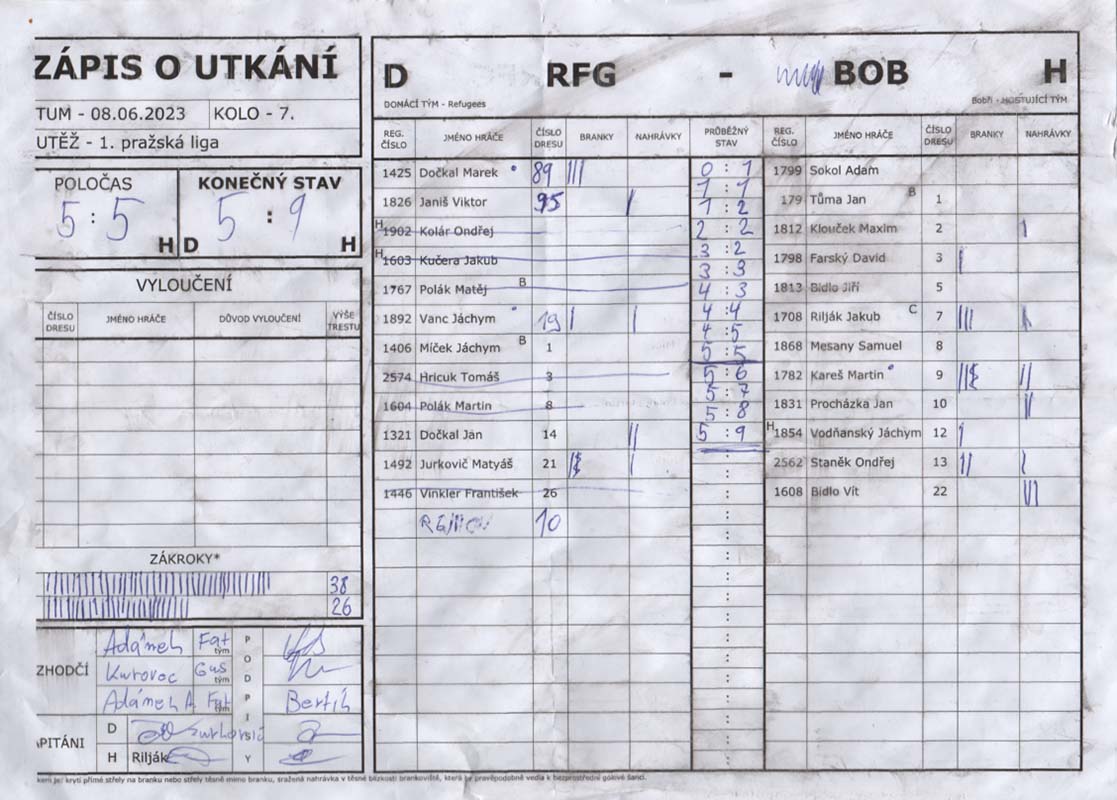 ZÁPIS O UTKÁNÍ
TUM - 08.06.2023 KOLO - 7.
UTĚŽ - 1. pražská liga
POLOČAS KONEČNÝ STAV
5 : 5 5 : 9
H D H
VYLOUČENÍ
ČÍSLO DRESU JMÉNO HRÁČE DŮVOD VYLOUČENÍ VÝŠE TRESTU
ZÁKROKY*
38
26
ZHODČÍ
Adámek Fat tým
Kurovec Gus tým
Adámek A Fat tým
Bertík
PODPISY
APITÁNI
D
H Rilják
D RFG - BOB H
DOMÁCÍ TÝM - Refugees Bobři - HOSTUJÍCÍ TÝM
REG. ČÍSLO JMÉNO HRÁČE ČÍSLO DRESU BRANKY NAHRÁVKY PRŮBĚŽNÝ STAV REG. ČÍSLO JMÉNO HRÁČE ČÍSLO DRESU BRANKY NAHRÁVKY
1425 Dočkal Marek 89 |||
1826 Janiš Viktor 95 |
H 1902 Kolár Ondřej
H 1603 Kučera Jakub
1767 Polák Matěj B
1892 Vanc Jáchym 19 | |
1406 Míček Jáchym B 1
2574 Hricuk Tomáš 3
1604 Polák Martin 8
1321 Dočkal Jan 14 ||
1492 Jurkovič Matyáš 21 |
1446 Vinkler František 26
10
0 : 1
1 : 1
1 : 2
2 : 2
3 : 2
3 : 3
4 : 3
4 : 4
4 : 5
5 : 5
5 : 6
5 : 7
5 : 8
5 : 9
1799 Sokol Adam
179 Tůma Jan B 1
1812 Klouček Maxim 2 |
1798 Farský David 3 |
1813 Bidlo Jiří 5
1708 Rilják Jakub C 7 ||| |
1868 Mesany Samuel 8
1782 Kareš Martin 9 ||
1831 Procházka Jan 10 ||
H 1854 Vodňanský Jáchym 12 |
2562 Staněk Ondřej 13 || |
1608 Bidlo Vít 22
kem je: krytí přímé střely na branku nebo střely těsně mimo branku, sražená nahrávka v těsné blízkosti brankoviště, která by pravěpodobně vedla k bezprostřední gólové šanci.